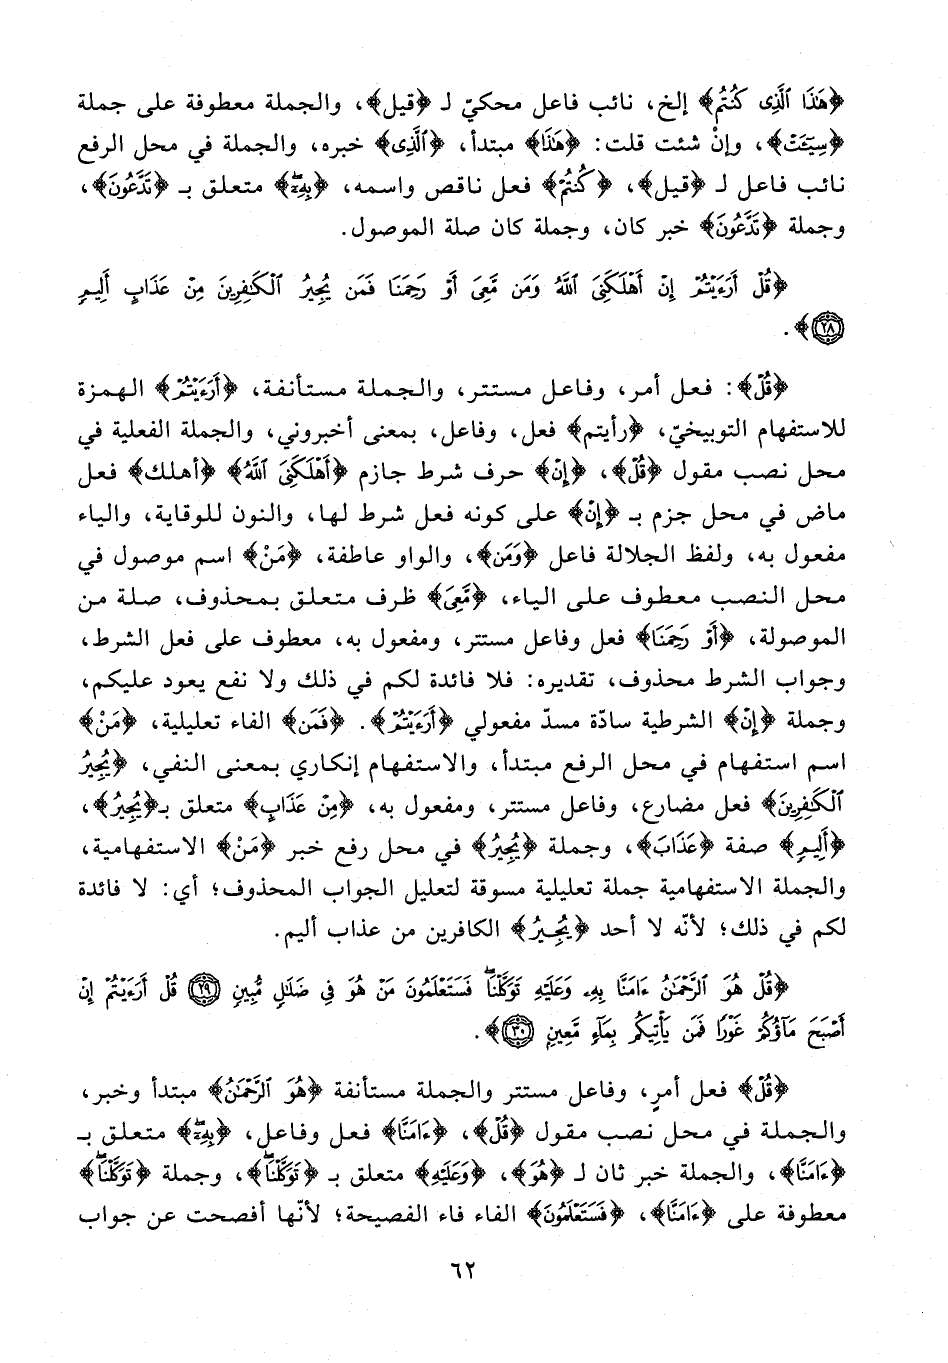 ﴿هَٰذَا ٱلَّذِى كُنتُم﴾ إلخ، نائب فاعل محكيّ لـ ﴿قيل﴾، والجملة معطوفة على جملة
﴿سِيٓـَٔتْ﴾، وإنْ شئت قلت: ﴿هَٰذَا﴾ مبتدأ، ﴿ٱلَّذِى﴾ خبره، والجملة في محل الرفع
نائب فاعل لـ ﴿قيل﴾، ﴿كُنتُمْ﴾ فعل ناقص واسمه، ﴿بِهِۦ﴾ متعلق بـ ﴿تَدَّعُونَ﴾،
وجملة ﴿تَدَّعُونَ﴾ خبر كان، وجملة كان صلة الموصول.
﴿قُلْ أَرَءَيْتُمْ إِنْ أَهْلَكَنِىَ ٱللَّهُ وَمَن مَّعِىَ أَوْ رَحِمَنَا فَمَن يُجِيرُ ٱلْكَٰفِرِينَ مِنْ عَذَابٍ أَلِيمٍ
٢٨﴾.
﴿قُلْ﴾: فعل أمر، وفاعل مستتر، والجملة مستأنفة، ﴿أَرَءَيْتُمْ﴾ الهمزة
للاستفهام التوبيخيّ، ﴿رأيتم﴾ فعل، وفاعل، بمعنى أخبروني، والجملة الفعلية في
محل نصب مقول ﴿قُلْ﴾، ﴿إِنْ﴾ حرف شرط جازم ﴿أَهْلَكَنِىَ ٱللَّهُ﴾ ﴿أهلك﴾ فعل
ماض في محل جزم بـ ﴿إِنْ﴾ على كونه فعل شرط لها، والنون للوقاية، والياء
مفعول به، ولفظ الجلالة فاعل ﴿وَمَن﴾، والواو عاطفة، ﴿مَنْ﴾ اسم موصول في
محل النصب معطوف على الياء، ﴿مَّعِىَ﴾ ظرف متعلق بمحذوف، صلة من
الموصولة، ﴿أَوْ رَحِمَنَا﴾ فعل وفاعل مستتر، ومفعول به، معطوف على فعل الشرط،
وجواب الشرط محذوف، تقديره: فلا فائدة لكم في ذلك ولا نفع يعود عليكم،
وجملة ﴿إِنْ﴾ الشرطية سادّة مسدّ مفعولي ﴿أَرَءَيْتُمْ﴾. ﴿فَمَن﴾ الفاء تعليلية، ﴿مَنْ﴾
اسم استفهام في محل الرفع مبتدأ، والاستفهام إنكاري بمعنى النفي، ﴿يُجِيرُ
ٱلْكَٰفِرِينَ﴾ فعل مضارع، وفاعل مستتر، ومفعول به، ﴿مِنْ عَذَابٍ﴾ متعلق بـ﴿يُجِيرُ﴾،
﴿أَلِيمٍ﴾ صفة ﴿عَذَابَ﴾، وجملة ﴿يُجِيرُ﴾ في محل رفع خبر ﴿مَنْ﴾ الاستفهامية،
والجملة الاستفهامية جملة تعليلية مسوقة لتعليل الجواب المحذوف؛ أي: لا فائدة
لكم في ذلك؛ لأنّه لا أحد ﴿يُجِيرُ﴾ الكافرين من عذاب أليم.
﴿قُلْ هُوَ ٱلرَّحْمَٰنُ ءَامَنَّا بِهِۦ وَعَلَيْهِ تَوَكَّلْنَا ۖ فَسَتَعْلَمُونَ مَنْ هُوَ فِى ضَلَٰلٍ مُّبِينٍ ٢٩ قُلْ أَرَءَيْتُمْ إِنْ
أَصْبَحَ مَآؤُكُمْ غَوْرًا فَمَن يَأْتِيكُم بِمَآءٍ مَّعِينٍ ٣٠﴾.
﴿قُلْ﴾ فعل أمرٍ، وفاعل مستتر والجملة مستأنفة ﴿هُوَ ٱلرَّحْمَٰنُ﴾ مبتدأ وخبر،
والجملة في محل نصب مقول ﴿قُلْ﴾، ﴿ءَامَنَّا﴾ فعل وفاعل، ﴿بِهِۦ﴾ متعلق بـ
﴿ءَامَنَّا﴾، والجملة خبر ثان لـ ﴿هُوَ﴾، ﴿وَعَلَيْهِ﴾ متعلق بـ ﴿تَوَكَّلْنَا ۖ﴾، وجملة ﴿تَوَكَّلْنَا ۖ﴾
معطوفة على ﴿ءَامَنَّا﴾، ﴿فَسَتَعْلَمُونَ﴾ الفاء فاء الفصيحة؛ لأنّها أفصحت عن جواب
٦٢